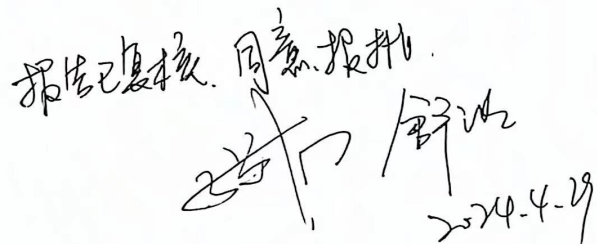 报告已复核、同意报批.
舒
2024-4-29